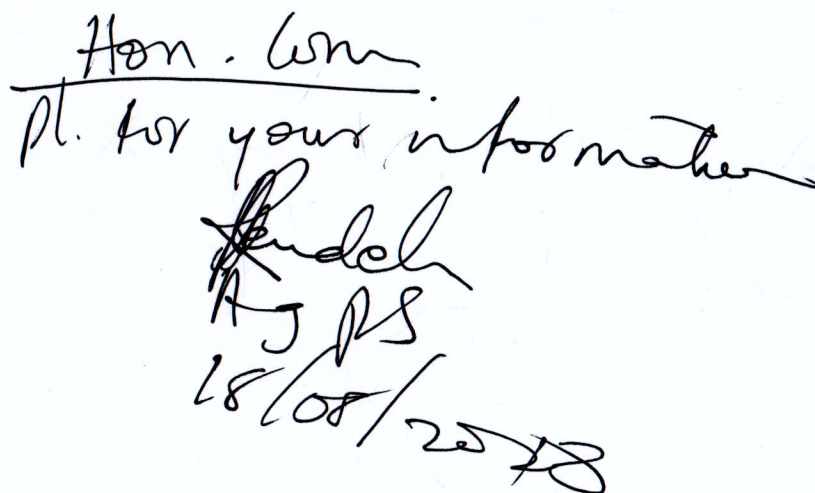 Hon. Com
Pl. for your information
Ag PS
18/08/20